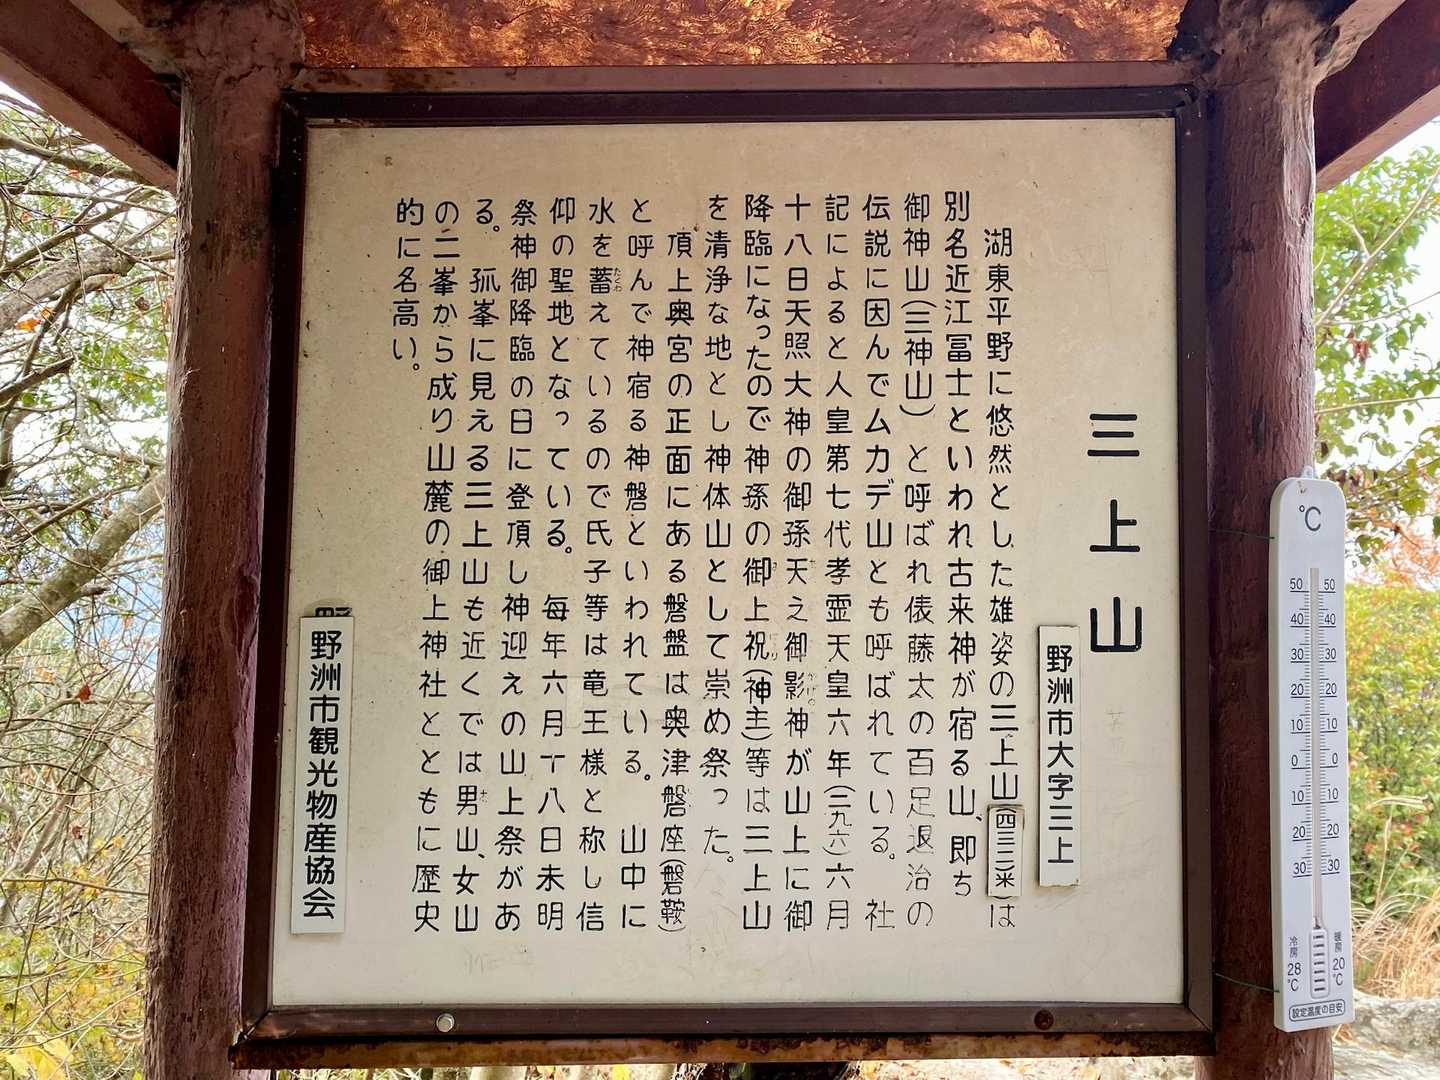 三上山
野洲市大字三上
湖東平野に悠然とした雄姿の三上山(四三二米)は
別名近江冨士といわれ古来神が宿る山、即ち
御神山(三神山)と呼ばれ俵藤太の百足退治の
伝説に因んでムカデ山とも呼ばれている。社
記によると人皇第七代孝霊天皇六年(二九六)六月
十八日天照大神の御孫天之御影神が山上に御
降臨になったので神孫の御上祝(神主)等は三上山
を清浄な地とし神体山として崇め祭った。
頂上奥宮の正面にある磐盤は奥津磐座(磐鞍)
と呼んで神宿る神磐といわれている。山中に
水を蓄えているので氏子等は竜王様と称し信
仰の聖地となっている。毎年六月十八日未明
祭神御降臨の日に登頂し神迎えの山上祭があ
る。孤峯に見える三上山も近くでは男山、女山
の二峯から成り山麓の御上神社とともに歴史
的に名高い。
野洲市観光物産協会
℃
50 50
40 40
30 30
20 20
10 10
0 0
10 10
20 20
30 30
冷房
28℃
暖房
20℃
設定温度の目安